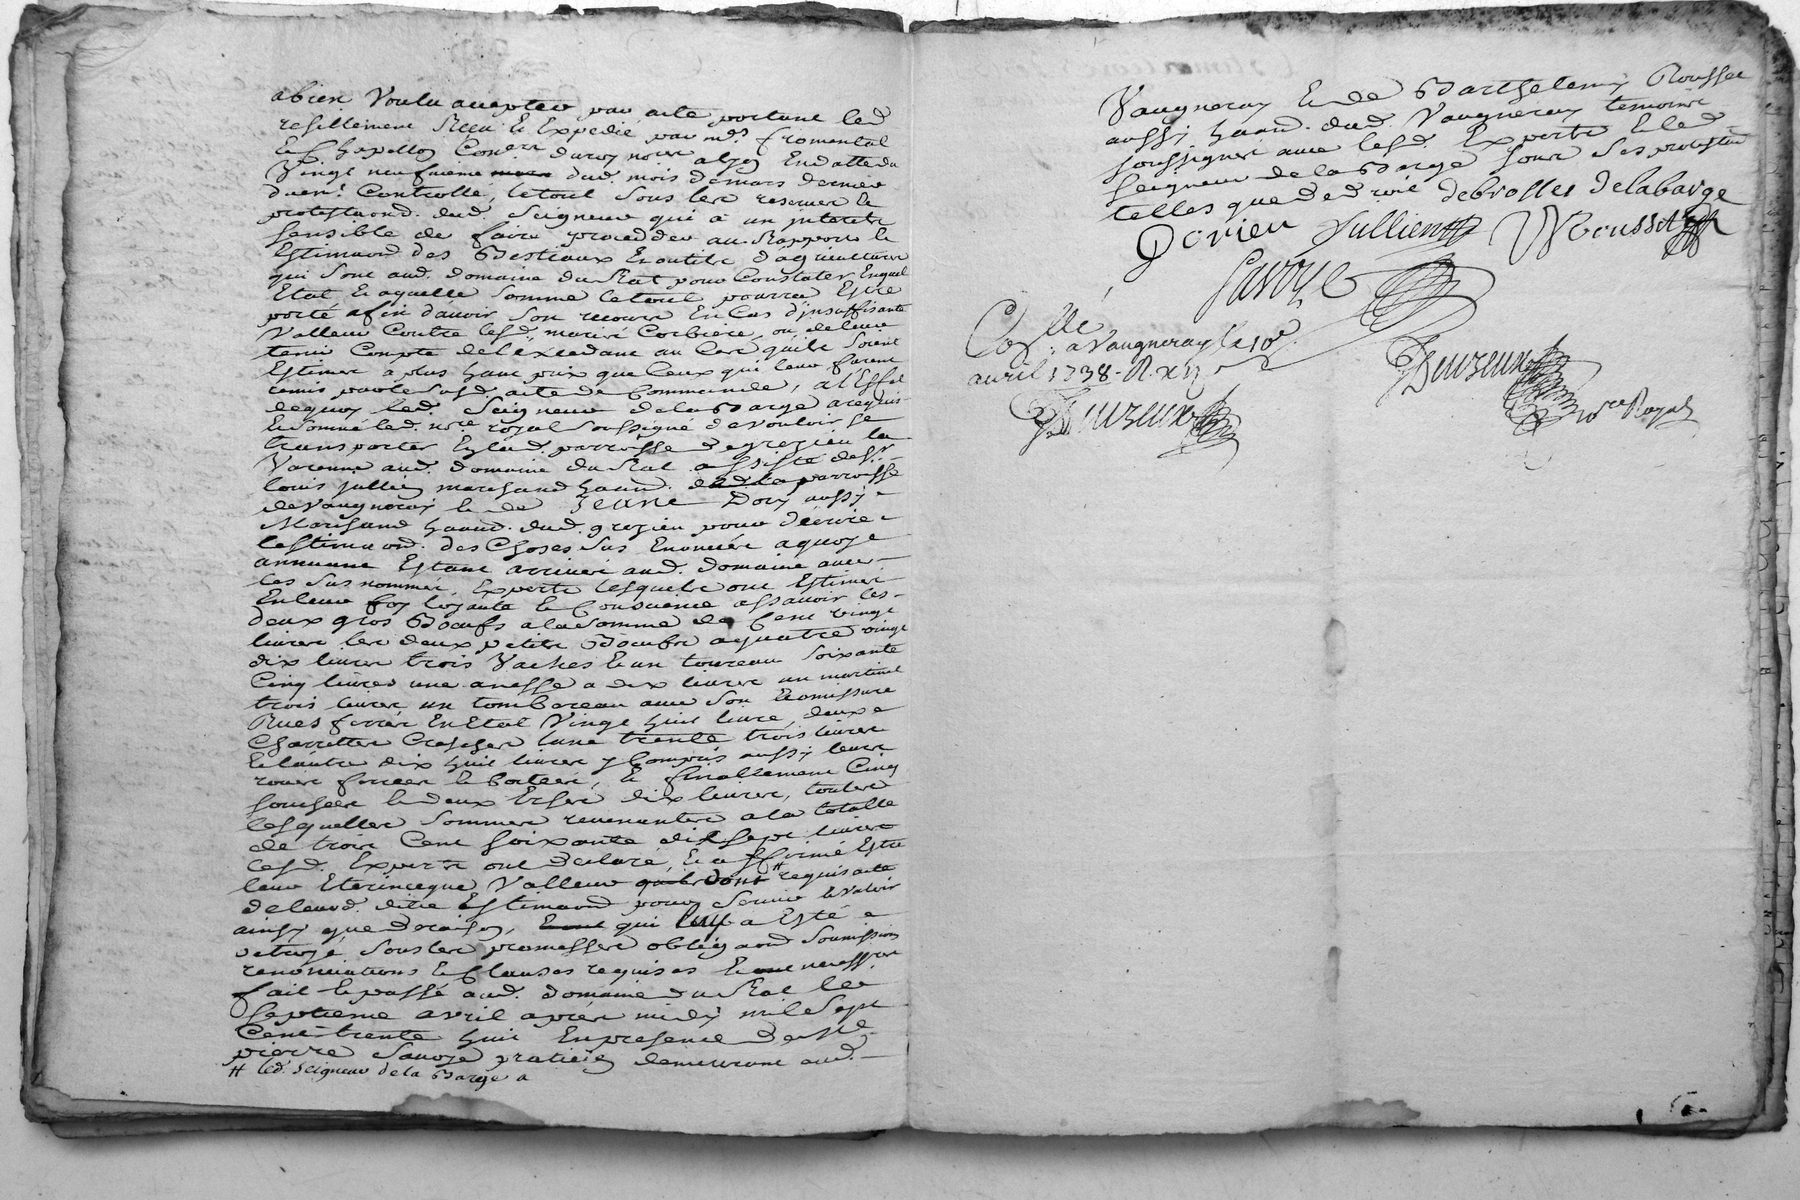 abien Voulu accepter par acte portant led
resiliement Receu & Expedié par mes fromental
& Chapellon Coners du roy nores a lyon En datte du
Vingt neufvieme dud. mois de mars dernier
duem.t Controllé, le tout sous les reserves &
protestaond. dud. Seigneur qui a un interetz
sensible de faire proceder au Rapport &
Estimaond des Bestiaux & outils d'agriculture
qui sont aud. domaine du Rat pour Constater En quel
Etat & aquelle somme le tout pourra Estre
porté afin d'avoir son recours En Cas d'insuffisante
Valleur Contre lesd. mariés Corbiere, ou de leur
tenir Compte de l'excedant au Cas quils soient
Estimes a plus haut prix que Ceux qui leur furent
remis par le susd. acte de Commande, a l'Effet
dequoy led. Seigneur de la Barge a requis
& sommé led. nore royal soussigné de vouloir se
transporter En lad. parroisse de grezieu la
Varenne aud. domaine du Rat assisté de Sr
louis jullien marchand haand. de la parroisse
de Vaugneray & de Jeane Dory aussy
Marchand haand. dud. grezieu pour décrire
lestimaond. des Choses sus Enoncées aquoy
annuant Estant arrivés aud. domaine avec
les sus nommés Experts lesquels ont Estimés
En leur foy loyauté & Conscience assavoir les
deux gros Boeufs a la somme de Cent vingt
livres les deux petits Boeufs a quatre vingt
dix livres trois Vaches & un toureau soixante
Cinq livres une anesse a dix livres un martinet
trois livres un tombereau avec son
Rues ferrées En Etat Vingt huit livre, deux
Charrettes lune trente trois livres
& l'autre dix huit livres y Compris aussy leurs
roues ferrées &, & finallement Cinq
& deux Erses dix livres, toutes
lesquelles sommes revenantes a la totalle
de trois Cent soixante dix sept livres
lesd. Experts ont declaré, & affirmé Estre
leur Eterinceque Valleur dont # requis acte
de leurd. ditte Estimaond pour servir & valoir
ainsy que de raison, qui luy a Esté
octroyé, sous les promesses obligaond soumissions
renonciations & Clauses requises & necessres
fait & passé aud. domaine du Rat le
septieme avril apres midy mil sept
Cent trente huit En presence de Sr
pierre Savoye praticien demeurant aud.
# led. Seigneur de la Barge a
Vaugneray & de Barthelemy Rousset
aussy haand. dud. Vaugneray temoins
soussignes avec lesd. Experts & led
Seigneur de la Barge sous ses protestaond
telles que de droit debrosses delabarge
Dorieu Jullien Rousset
Savoye
Collé
a Vaugneray le 10e
avril 1738. R. xij s
nore Royal